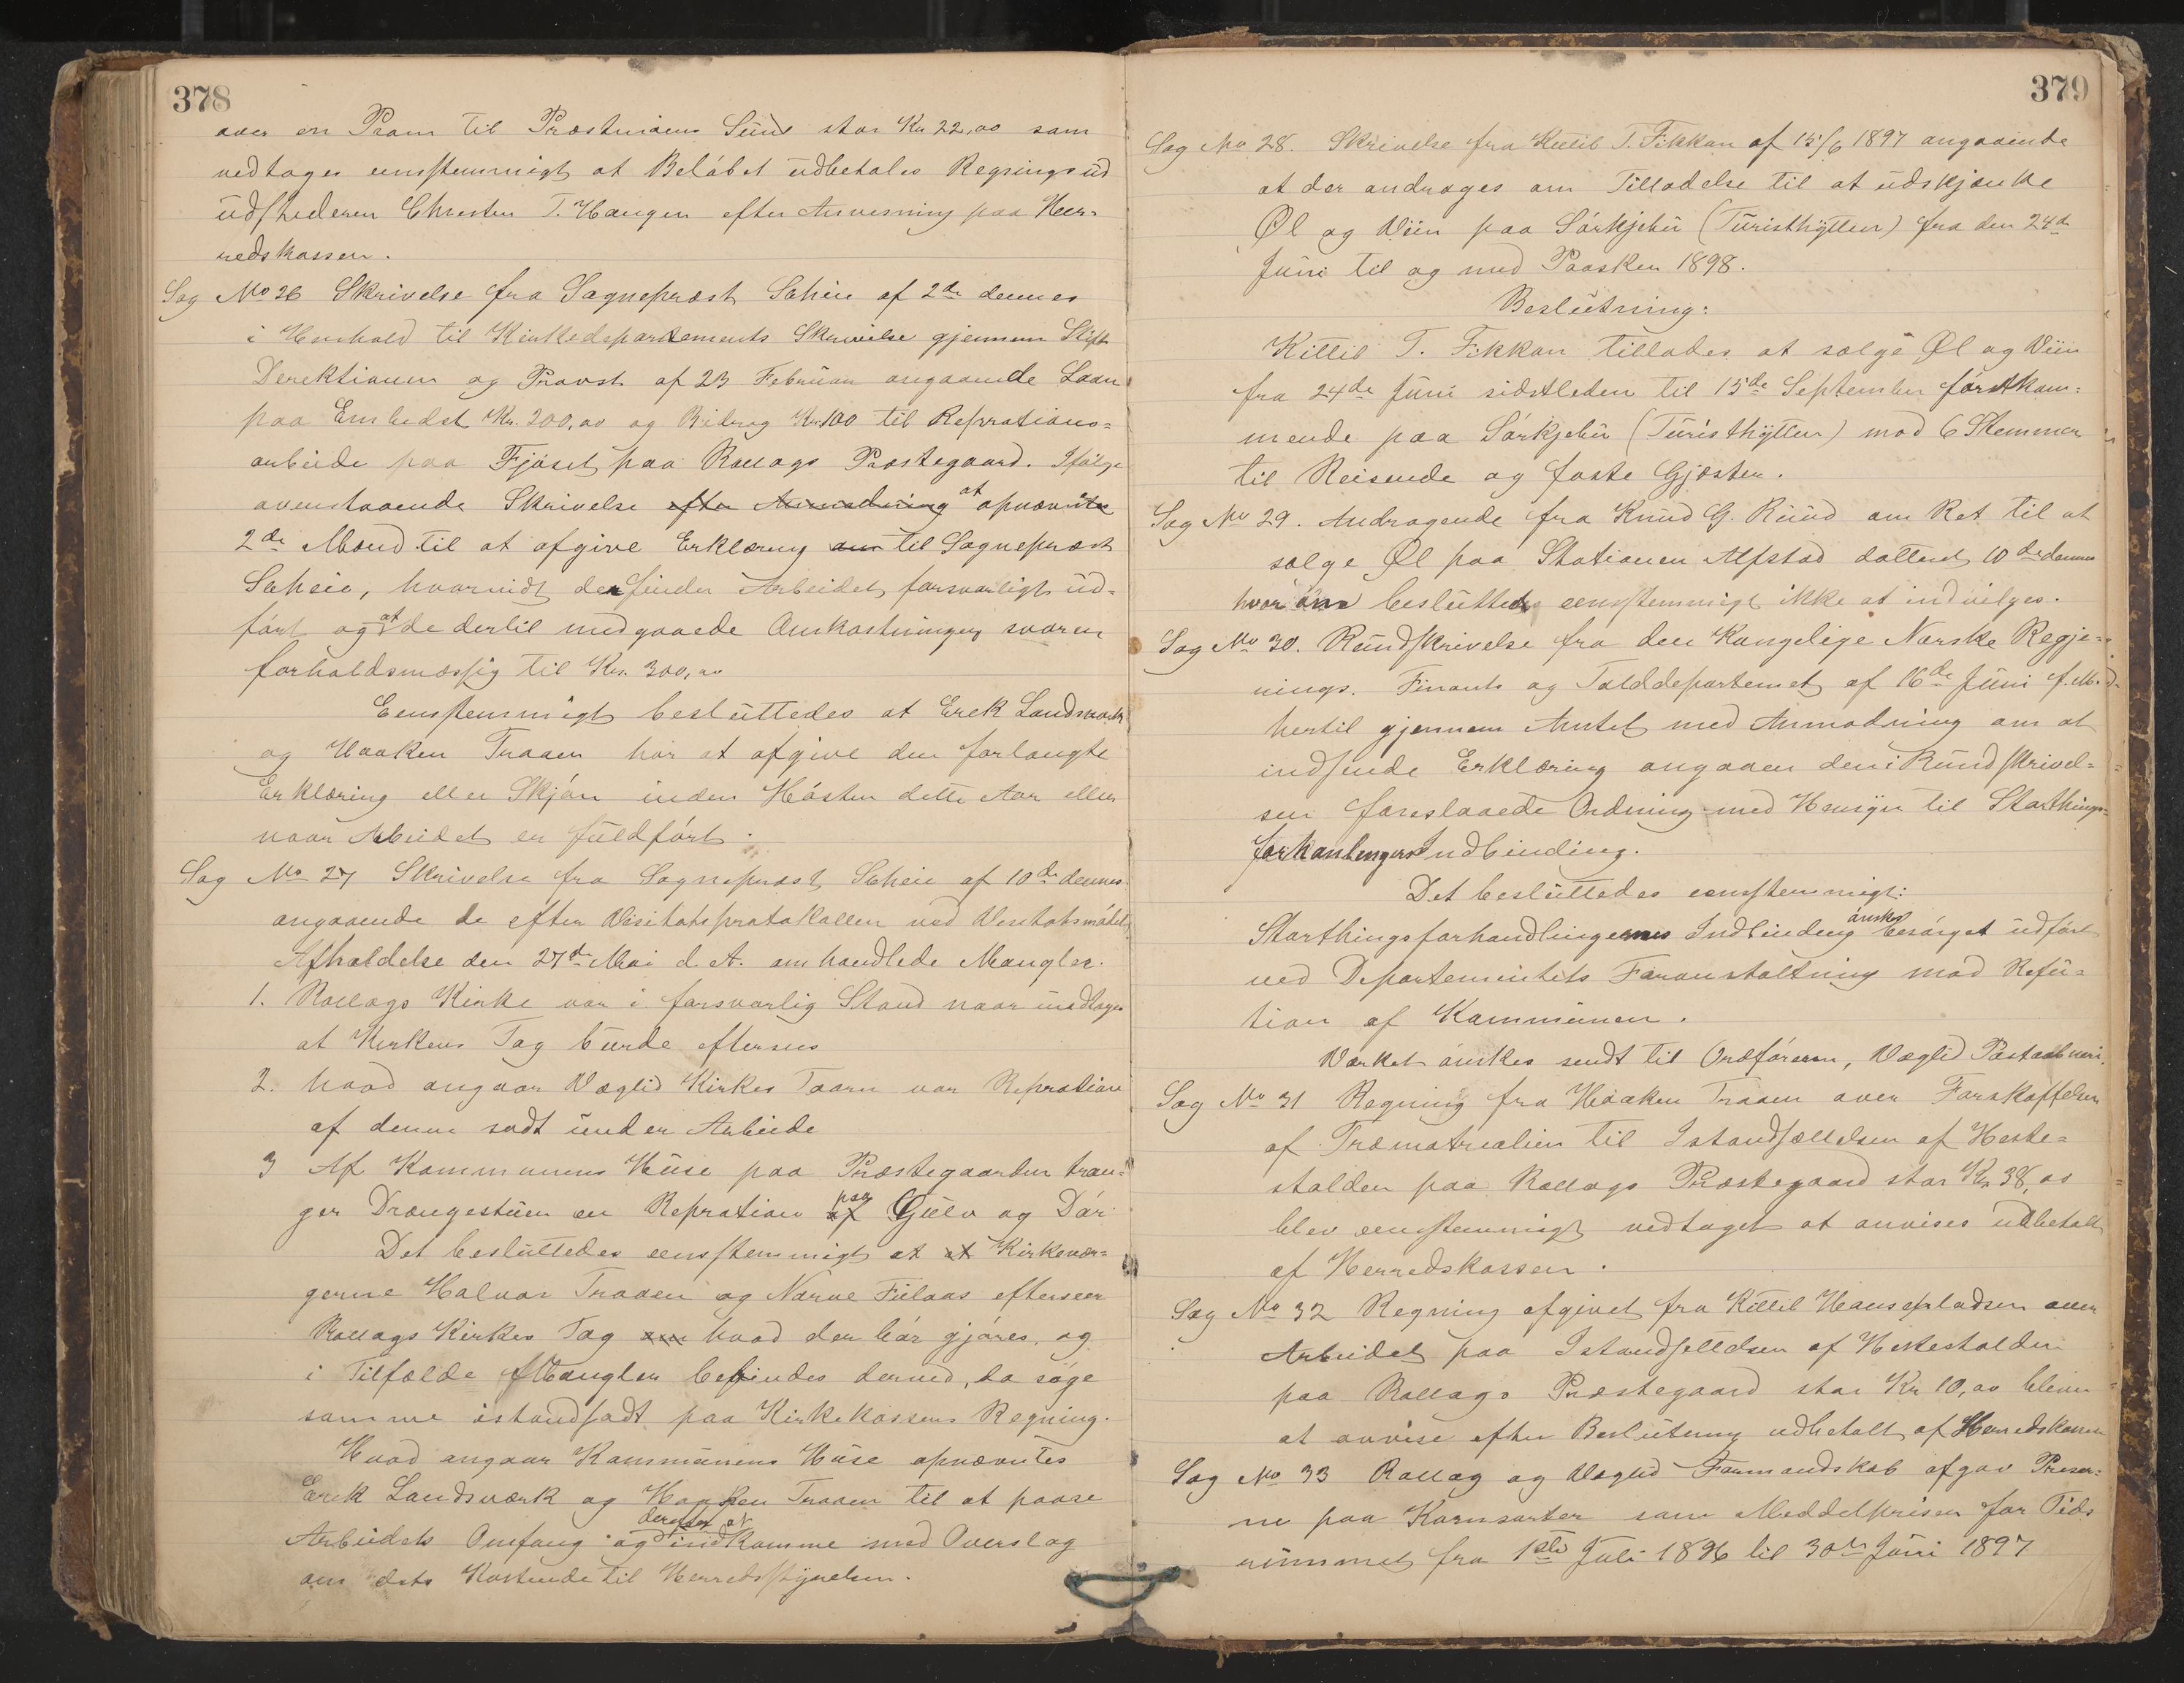 378
over en Pram til Præstmoens Sund stor Kr 22,00 som
vedtages eenstemmigt at Beløbet udbetales Regningsud
udstederen Christen T. Haugen efter Anvisning paa Her-
redskassen.
Sag No 26 Skrivelse fra Sognepræst Scheie af 2de dennes
i Henhold til Kirkedepartements Skrivelse gjennem Stift
Derektionen og Provst af 23 Februar angaaende Laan
paa Embedet Kr. 200,00 og Bidrag Kr. 100 til Reprations=
arbeide paa Fjøset paa Rollags Præstegaard. Ifølge
ovenstaaende Skrivelse efter Anmodning at opnævnte
2de Mænd til at afgive Erklæring om til Sognepræst
Scheie, hvorvidt de finder Arbeidet forsvarligt ud=
ført og at de dertil medgaaede Omkostninger svarer
forholdsmæssig til Kr. 300,00
Eenstemmigt besluttedes at Erek Landsverk
og Haaken Traaen har at afgive den forlangte
Erklæring eller Skjøn inden Høsten dette Aar eller
naar Arbeidet er fuldført.
Sag No 27 Skrivelse fra Sognepræst Scheie af 10de dennes
angaaende de efter Visitatsprotokollen ved Visitatsmødets
Afholdelse den 27de Mai d. A. omhandlede Mangler.
1. Rollags Kirke var i forsvarlig Stand naar undtages
at Kirkens Tag burde eftersees
2. hvad angaar Væglid Kirkes Taarn var Repration
af denne sadt under Arbeide
3 Af Kommunens Huse paa Præstegaarden træn=
ger Drængestuen en Repration af paa Gulv og Dør
Det besluttedes eenstemmigt at at Kirkevær=
gerne Halvor Traaen og Narve Fulaas efterseer
Rollags Kirkes Tag om hvad der bør gjøres, og
i Tilfælde Mangler befindes derved, da søge
samme istandsadt paa Kirkekassens Regning.
Hvad angaar Kommunens Huse opnævntes
Erek Landsværk og Haaken Traaen til at paase
Arbeidets Omfang og derefter at indkomme med Overslag
om dets Kostende til Herredsstyrelsen.
379
Sag No 28. Skrivelse fra Kittil T. Fikkan af 15/6 1897 angaaende
at der andrages om Tilladelse til at udskjænke
Øl og Viin paa Sørkjebu (Turisthytten) fra den 24de
Juni til og med Paasken 1898.
Beslutning:
Kittil T. Fikkan tillades at sælge Øl og Viin
fra 24de Juni sidstleden til 15de September førstkom=
mende paa Sørkjebu (Turisthytten) mod 6 Stemmer
til Reisende og faste Gjæster.
Sag No 29. Andragende fra Knud G. Ruud om Ret til at
sælge Øl paa Stationen Alfstad datteret 10de dennes
hvorom besluttedes eenstemmigt ikke at indvilges.
Sag No 30. Rundskrivelse fra den Kongelige Norske Regje=
rings. Finants og Tolddepartemet af 16de Juni f. M.
hertil gjennem Amtet med Anmodning om at
indsende Erklæring angaaen den i Rundskrivel=
sen foreslaaede Ordning med Hensyn til Storthings=
forhanlingers Indbinding.
Det besluttedes eenstemmigt:
Storthingsforhandlingernes Indbinding ønskes besørget udført
ved Departementets Foranstaltning mod Refu=
tion af Kommunen.
Værket ønskes sendt til Ordføreren, Væglid Postaabneri.
Sag No 31 Regning fra Haaken Traaen over Forskaffelsen
af Træmatrealier til Istandsættelsen af Heste=
stalden paa Rollags Præstegaard stor Kr 38,00
blev eenstemmigt vedtaget at anvises udbetalt
af Herredskassen.
Sag No 32 Regning afgivet fra Kittil Hansepladsen over
Arbeidet paa Istandsettelsen af Hestestalden
paa Rollags Præstegaard stor Kr 10,00 bleven
at anvise efter Beslutning udbetalt af Herredskassen
Sag No 33 Rollag og Væglid Formandskab afgav Preser=
ne paa Kornsorter som Meddelprisen for Tids
rummet fra 1ste Juli 1896 til 30te Juni 1897